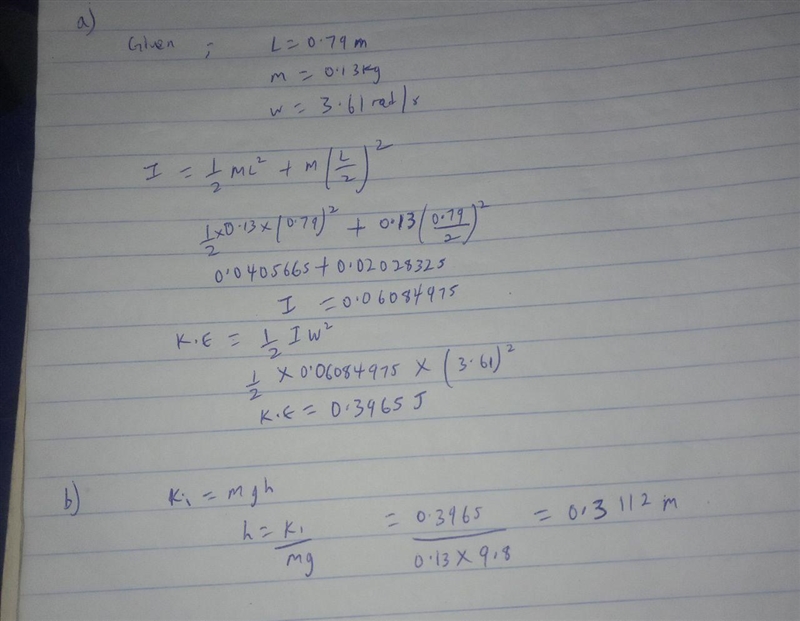 a)
Given ; L = 0.79 m
m = 0.13 kg
w = 3.61 rad/s
I = 1/2 ML² + M(L/2)²
1/2 x 0.13 x (0.79)² + 0.13(0.79/2)²
0.0405665 + 0.02028325
I = 0.06084975
K.E = 1/2 I W²
1/2 x 0.06084975 x (3.61)²
K.E = 0.3965 J
b) Ki = mgh
h = Ki/mg = 0.3965/0.13 x 9.8 = 0.3112 m